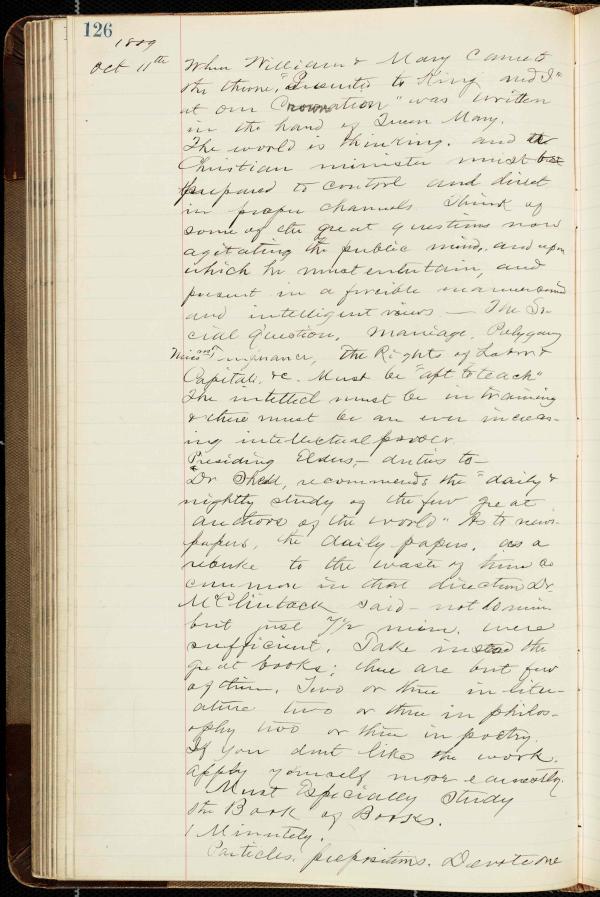 126
1889
Oct 11th
When William & Mary came to
the throne, "Presented to King and
at our Coronation" was written
in the hand of Queen Mary.
The world is thinking. and the
Christian minister must be
prepared to control and direct
in proper channels. Think of
some of the great questions now
agitating the public mind, and upon
which he must entertain, and
present in a forcible manner
and intelligent views — The So-
cial Question, Marriage, Polygamy
Temperance, the Rights of Labor &
Capital, &c. Must be "apt to teach"
The intellect must be in training
& there must be an ever increas-
ing intellectual power.
Presiding Elders,— duties to—
Dr. recommends the "daily &
nightly study of the few great
authors of the world" As to news-
papers, the daily papers, as a
rebuke to the waste of time so
common in that direction Dr.
McClintock said — not 10 min.
but just 7½ min. were
sufficient. Take instead the
great books; there are but few
of them. Two or three in liter-
ature two or three in philos-
ophy two or three in poetry.
If you dont like the work.
apply yourself more earnestly.
Must Especially study
the Book of Books.
1 Minutely.
Particles, prepositions. Devote one